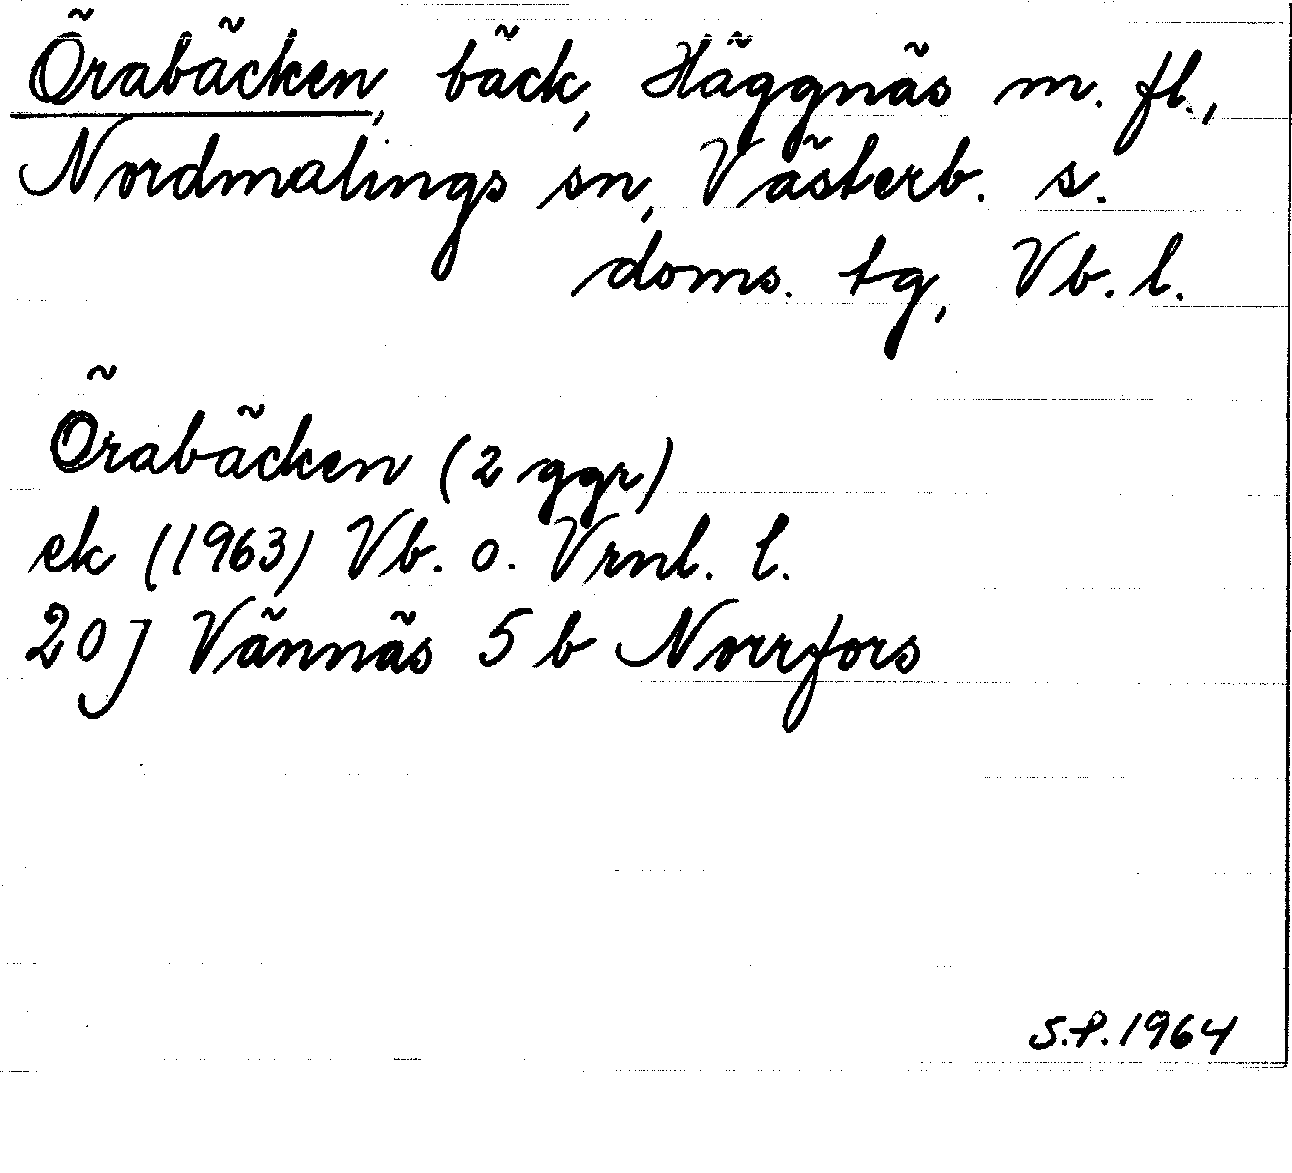 Örabäcken, bäck, Häggnäs m. fl.,
Nordmalings sn, Västerb. s.
doms. tg, Vb. l.
Örabäcken (2 ggr)
ek (1963) Vb. o. Vrnl. l.
20J Vännäs 5 b Norrfors
S.P. 1964